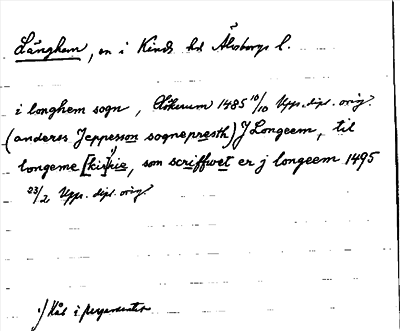 Länghem, en i Kinds hd Älvsborgs l.
i longhem sogn, 1485 10/10 Upps. dipl. orig.
(anderss Jeppesson sognepresth) J Longeem, til
longeme [ki]rkie, som scriffwet er j longeem 1495
23/2 Upps. dipl. orig.
1) Hål i pergamentet